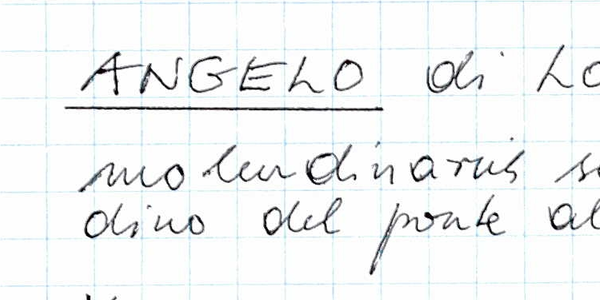 ANGELO di LO
molendinarius s
dino del ponte al